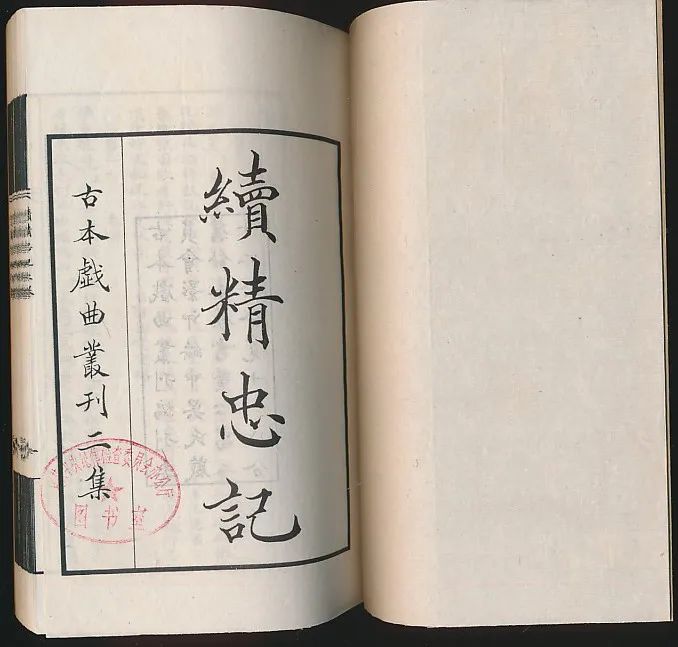 續精忠記
古本戲曲叢刊二集
图书室